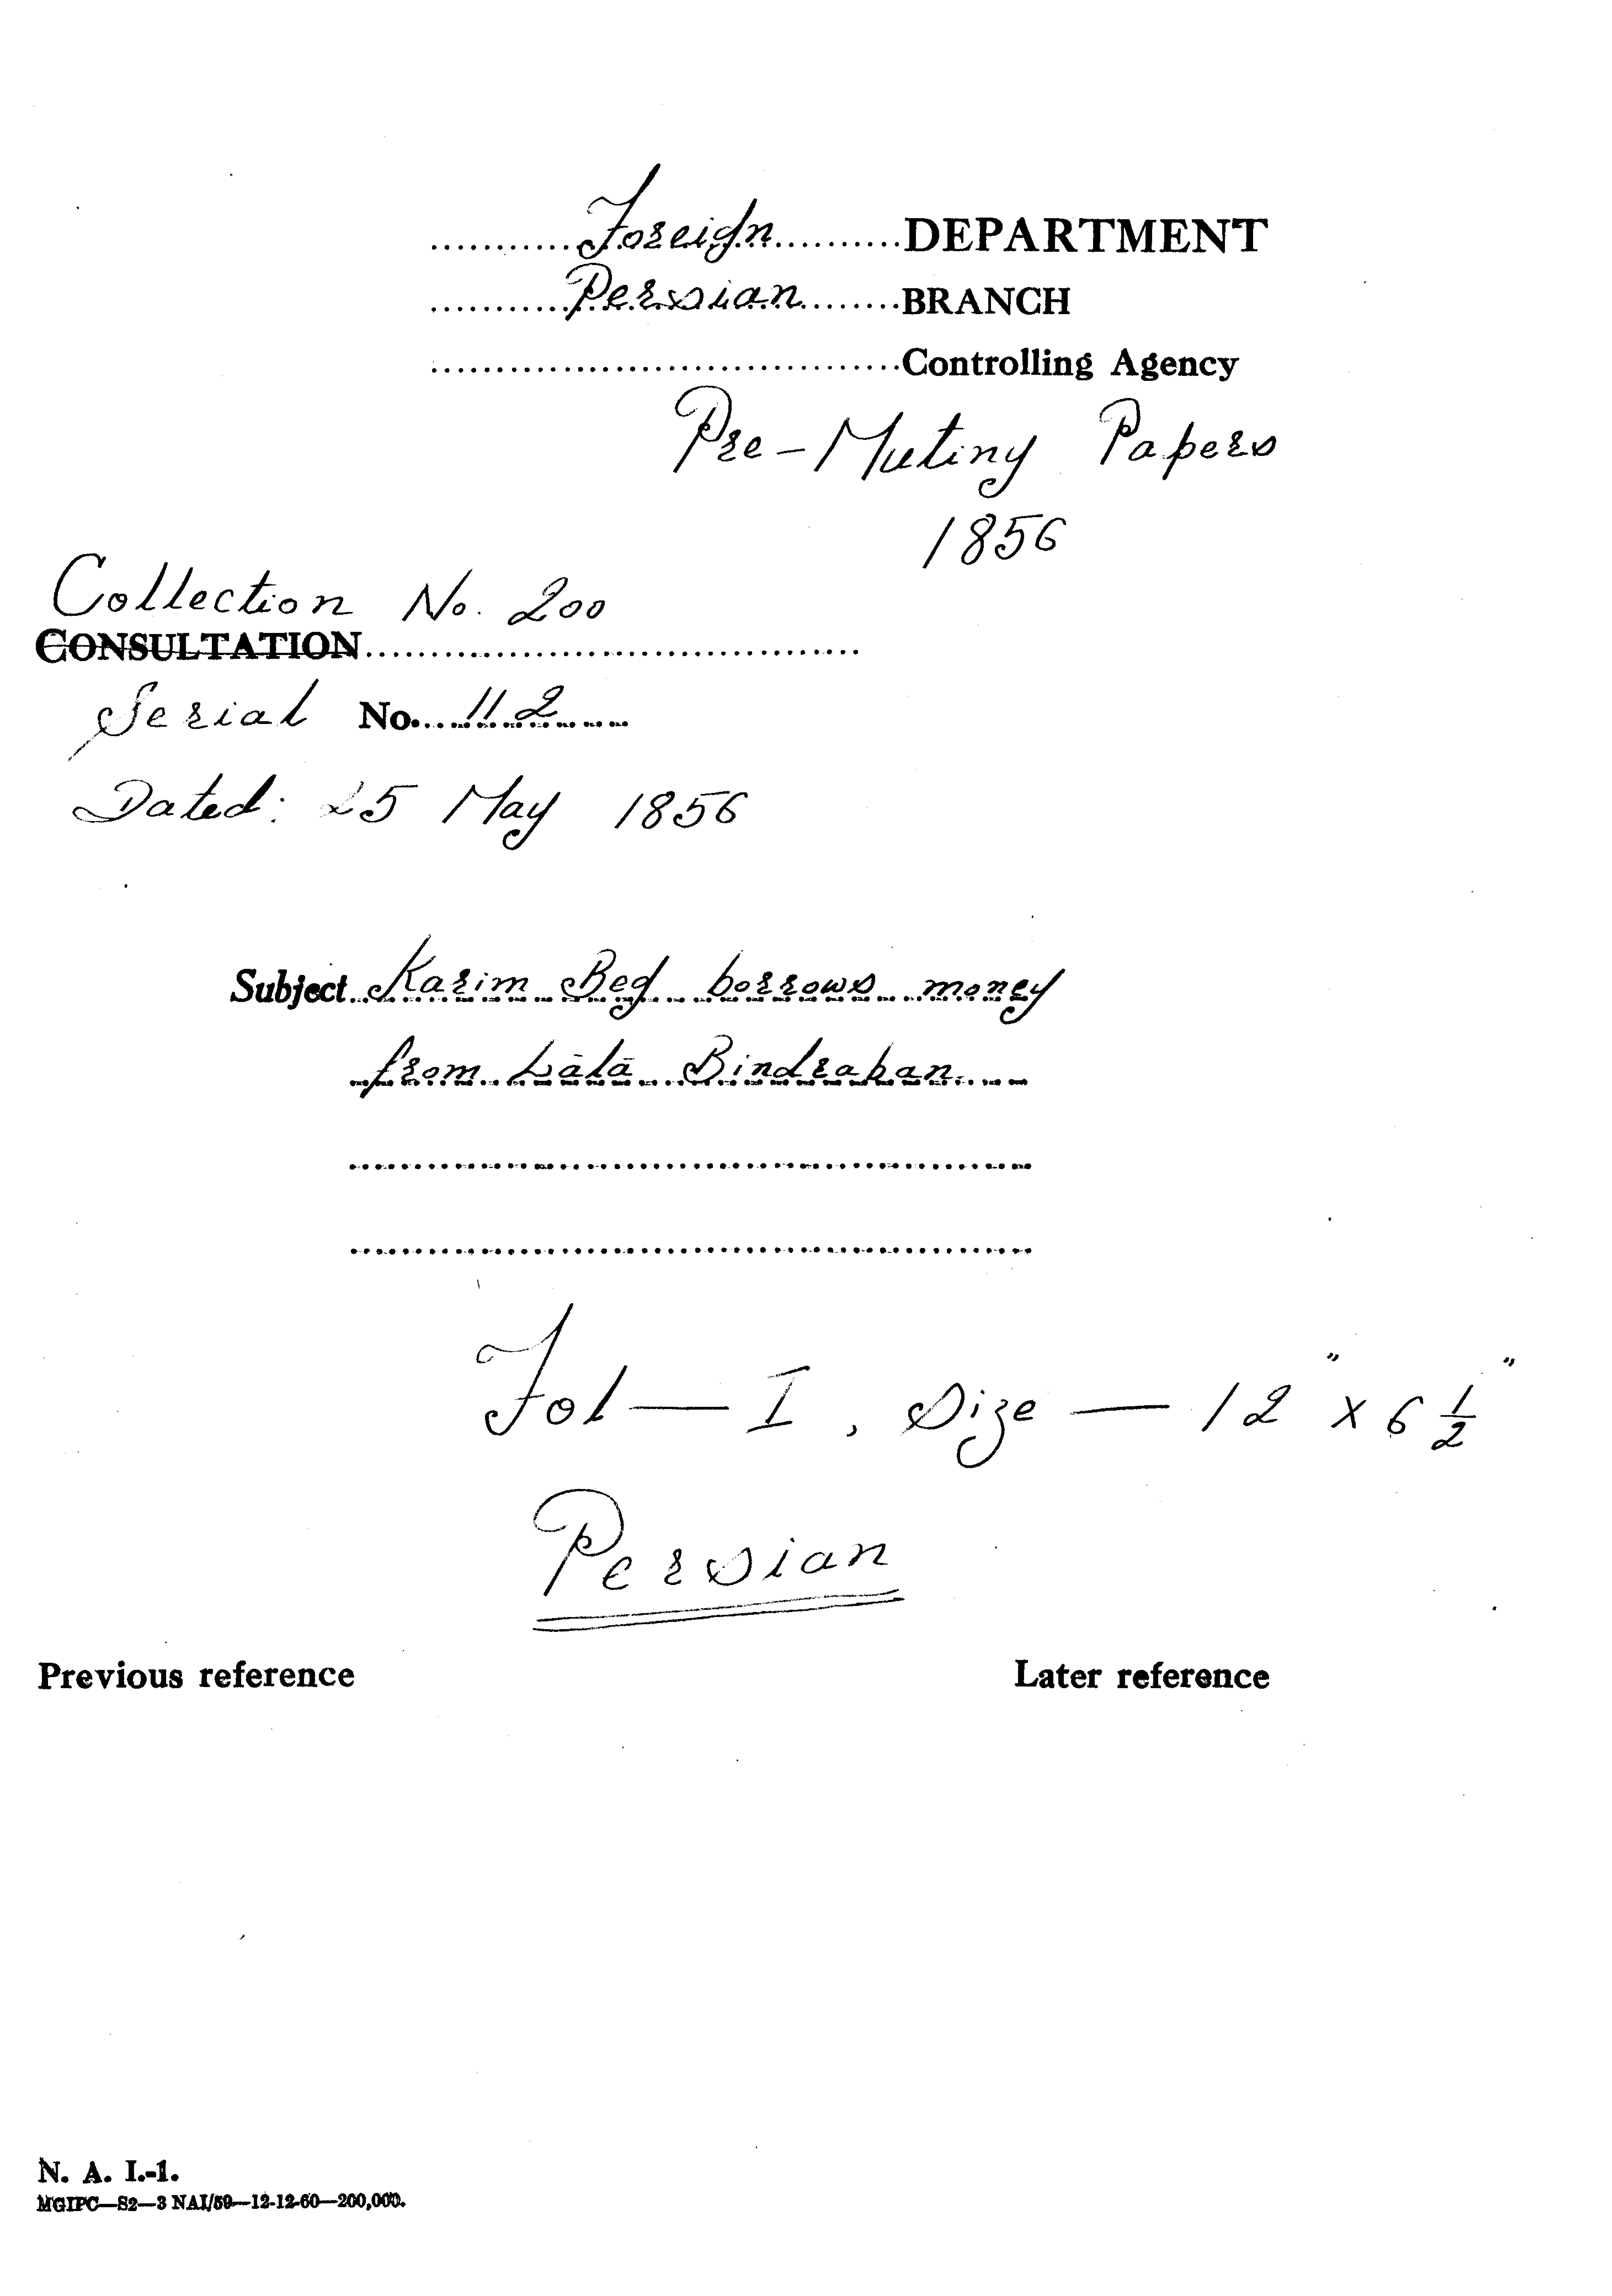 Foreign DEPARTMENT
Persian BRANCH
Controlling Agency
Pre-Mutiny Papers
1856
Collection No. 200
CONSULTATION
Serial No. 112
Dated: 25 May 1856
Subject Karim Beg borrows money
from Lālā Bindraban
Fol — I, Size — 12" x 6 1/2"
Persian
Previous reference Later reference
N. A. I.-1.
MGIPC—S2—3 NAI/59—12-12-60—200,000.